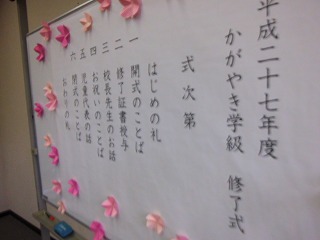 平成二十七年度
かがやき学級　修了式
式次第
はじめの礼
一　開式のことば
二　修了証書授与
三　校長先生のお話
四　お祝いのことば
五　児童代表の話
六　閉式のことば
おわりの礼